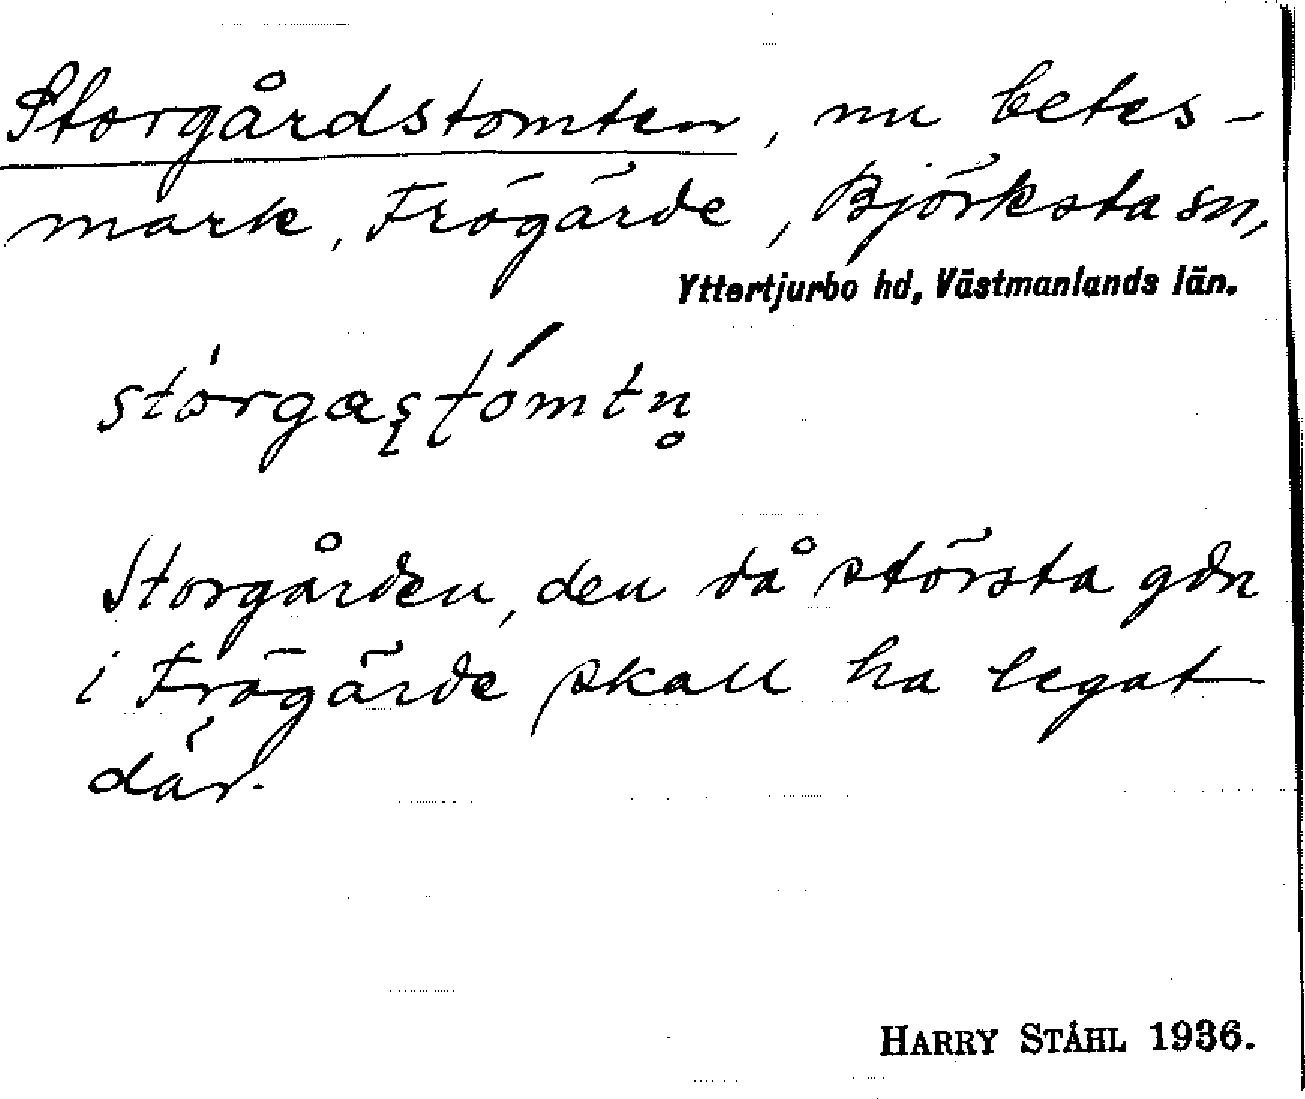 Storgårdstomten, nu betes-
mark, Frögärde, Björksta sn,
Yttertjurbo hd, Västmanlands län.
Storgården, den då största gdn
i Frögärde skall ha legat
där.
HARRY STÅHL 1936.